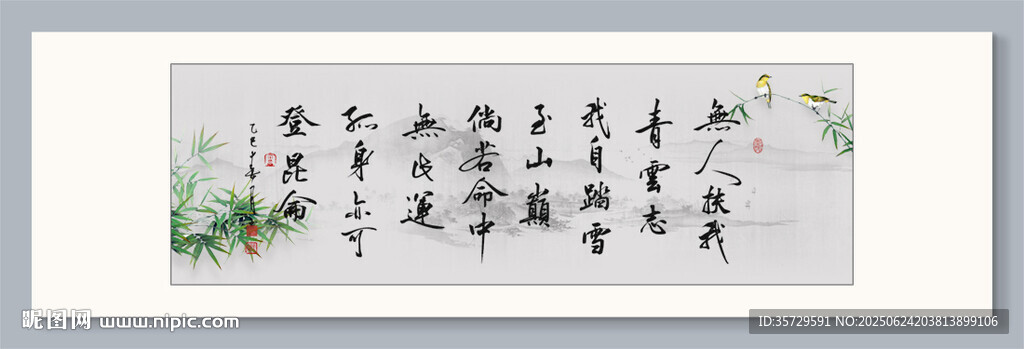 無人扶我
青雲志
我自踏雪
至山巔
倘若命中
無此運
孤身亦可
登昆侖
昵图网 www.nipic.com
ID:35729591 NO:20250624203813899106